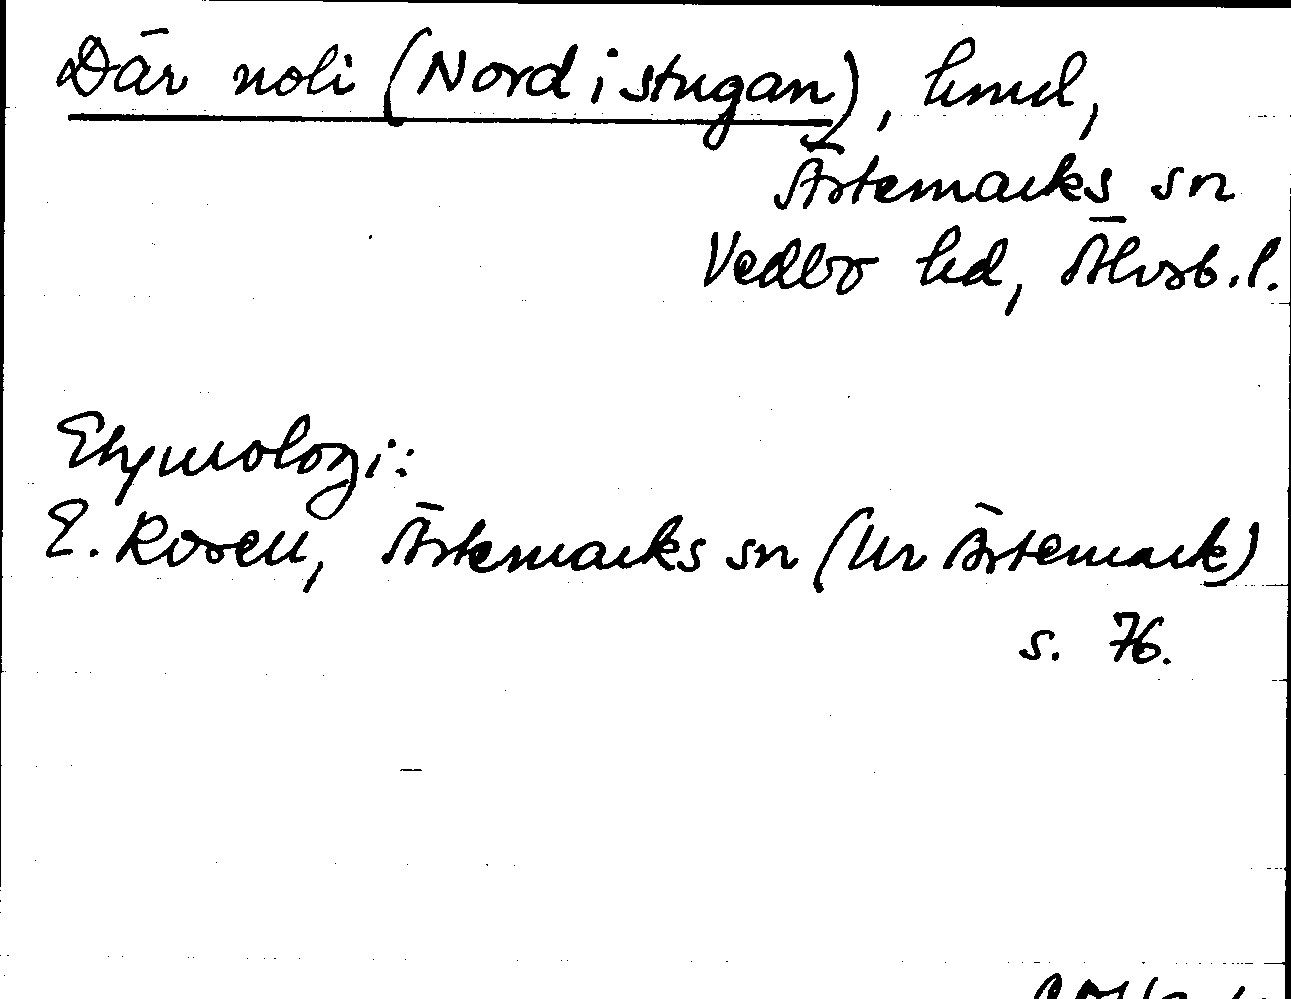 Där noli (Nord i stugan), hmd,
Ärtemarks sn
Vedbo hd, Älvsb. l.
Etymologi:
E. Rosell, Ärtemarks sn (Ur Ärtemark)
s. 76.